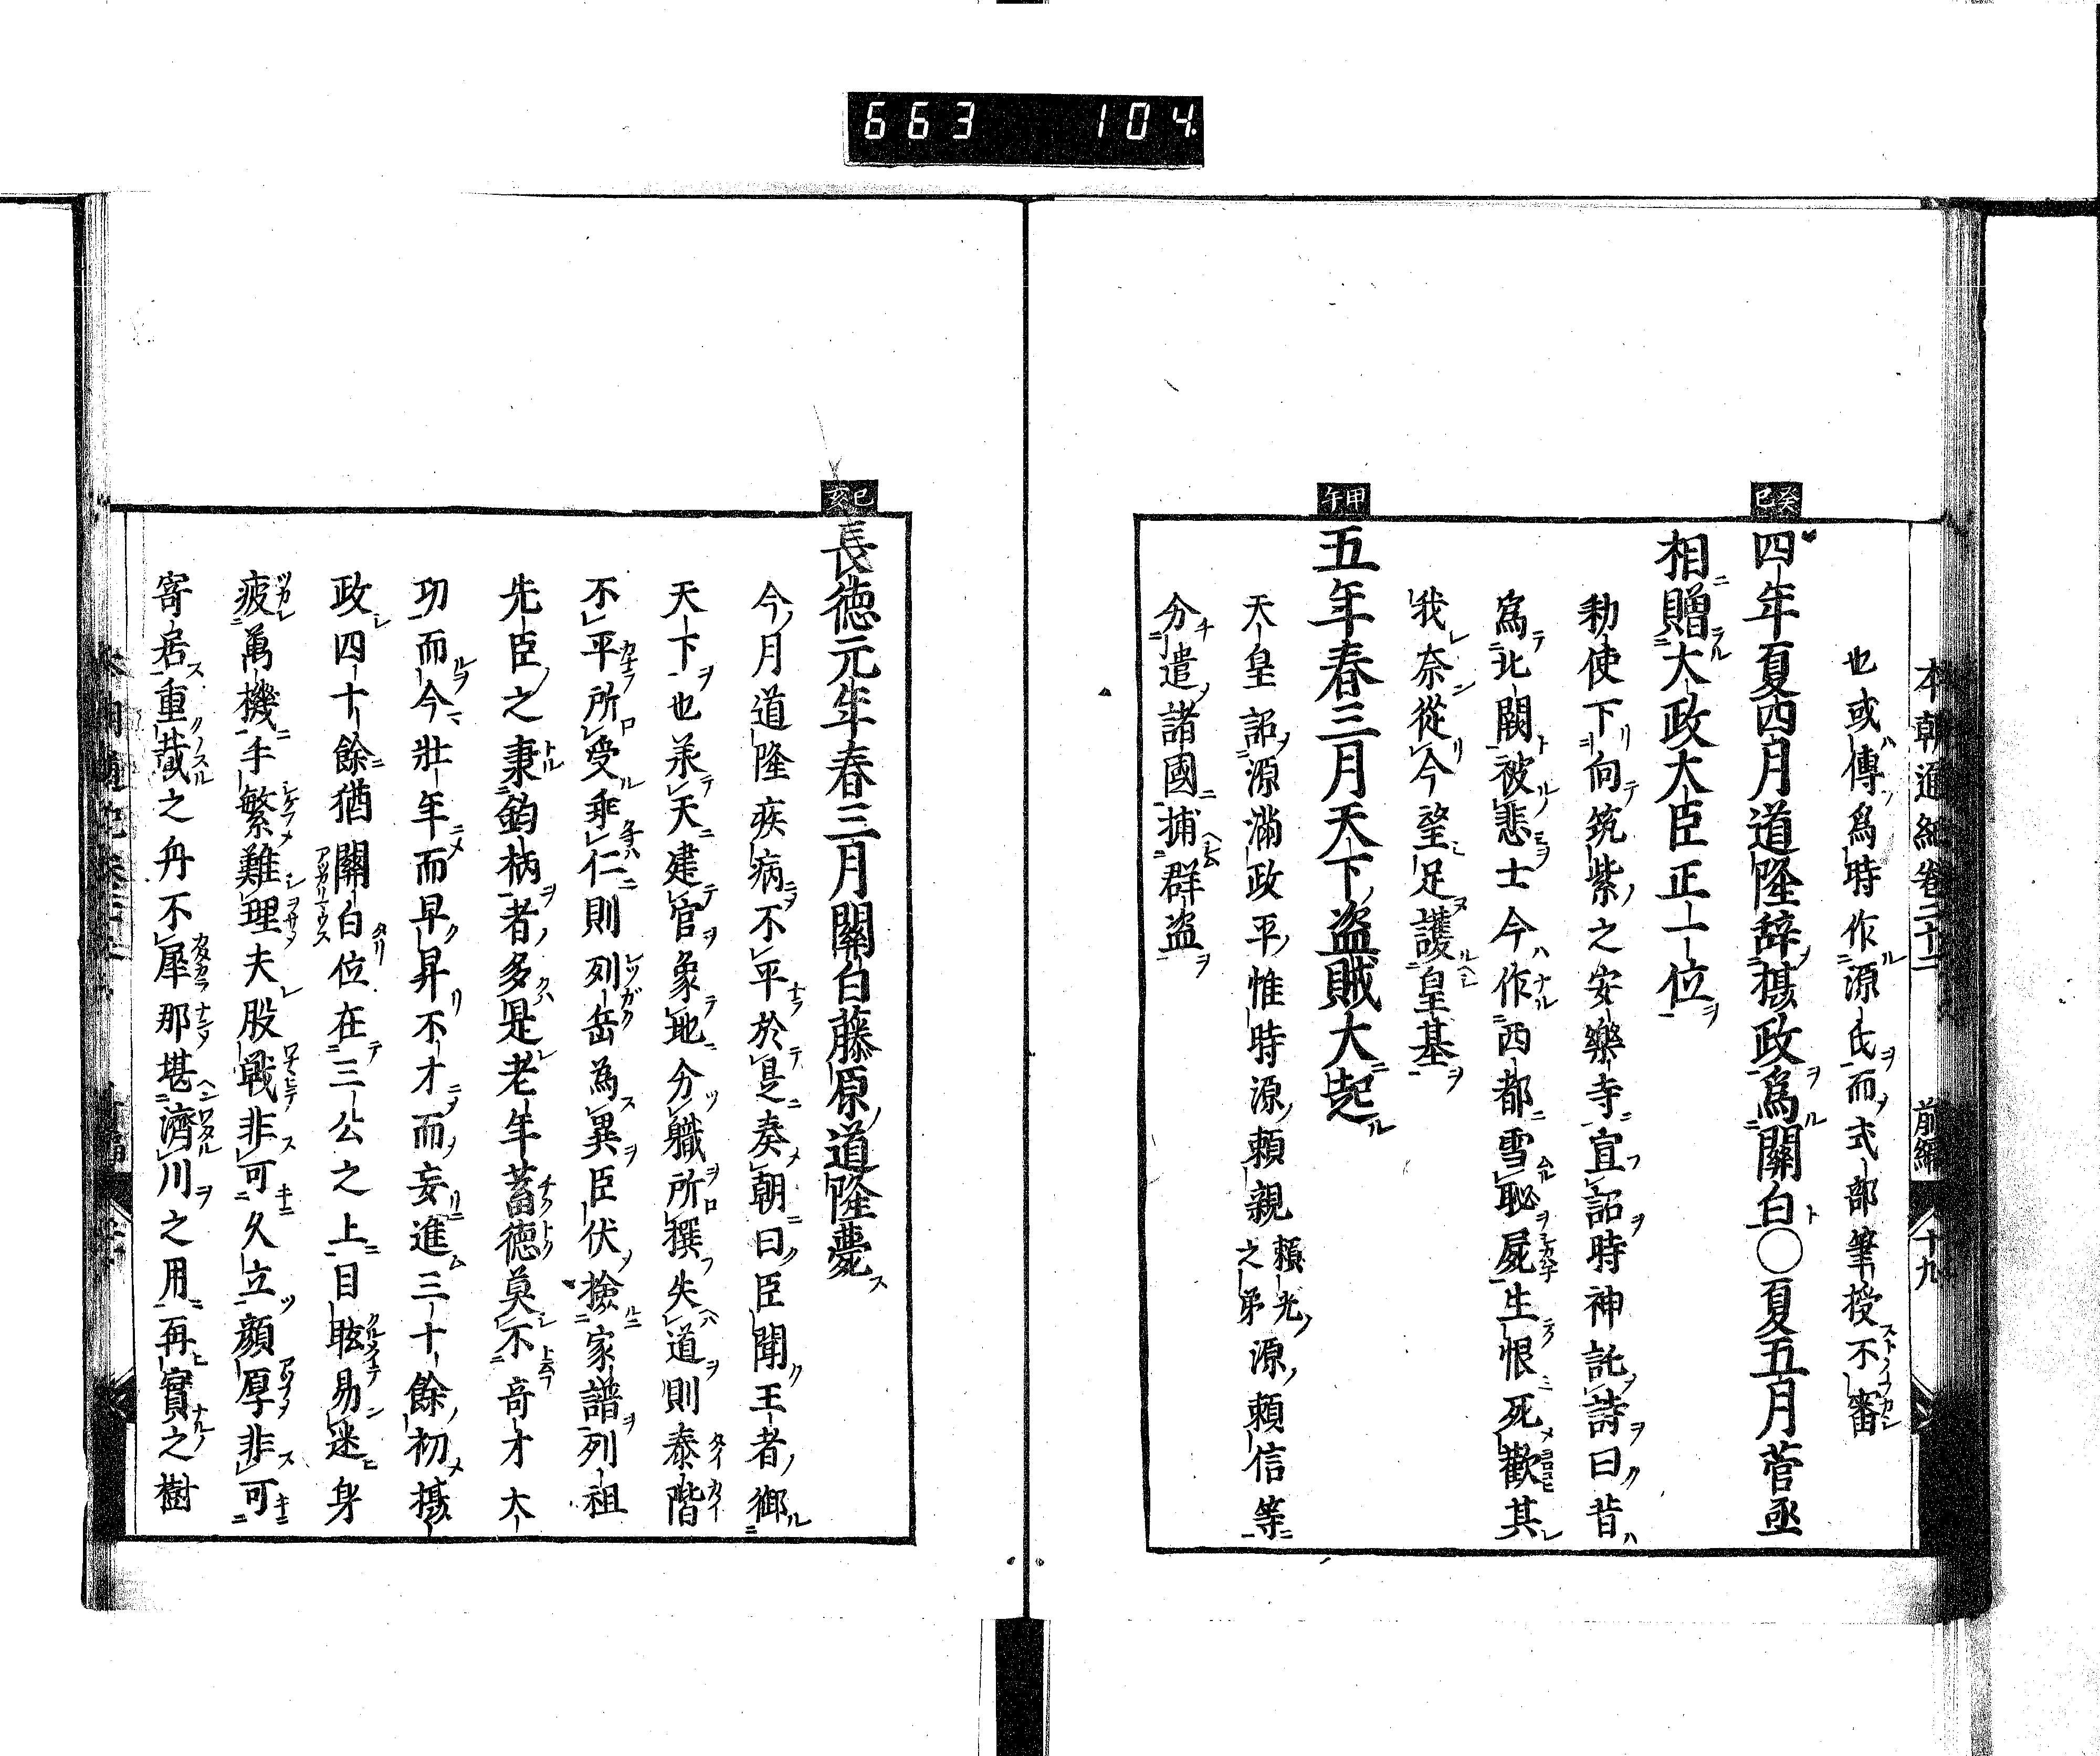 663 104
本朝通紀卷二十二 前編 十九
也或傳爲時作源氏而式部筆授不審
癸巳
四年夏四月道隆辞摂政爲關白○夏五月菅丞
相贈大政大臣正一位
勅使下向筑紫之安樂寺宣詔時神託詩曰昔
爲北闕被悲士今作西都雪恥屍生恨死歡其
我奈從今望足護皇基
甲午
五年春三月天下盗賊大起
天皇詔源滿政平惟時源賴親賴光之弟源賴信等
分遣諸國捕群盗
乙亥
長徳元年春三月關白藤原道隆薨
今月道隆疾病不平於是奏朝曰臣聞王者御
天下也義天建官象地分職所撰失道則泰階
不平所受乖仁則列岳爲異臣伏撿家譜列祖
先臣之秉鈞柄者多是老年蓄徳莫不奇才大
功而今壮年而早昇不才而妄進三十餘初摂
政四十餘猶關白位在三公之上目眩易迷身
疲萬機手繁難理夫股戰非可久立顔厚非可
寄居重載之舟不犀那堪濟川之用再實之樹